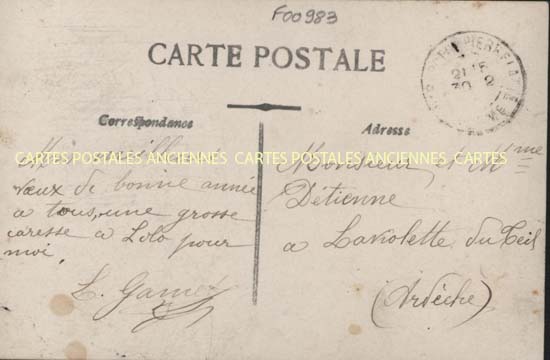 F00983
CARTE POSTALE
PIERRELATTE
Correspondance
Adresse
CARTES POSTALES ANCIENNES CARTES POSTALES ANCIENNES CARTES POSTALES ANCIENNES
Vœux de bonne année
a tous, une grosse
caresse a Lolo pour
moi.
Monsieur et Mme
Détienne
a Laviolette du Teil
(Ardèche)